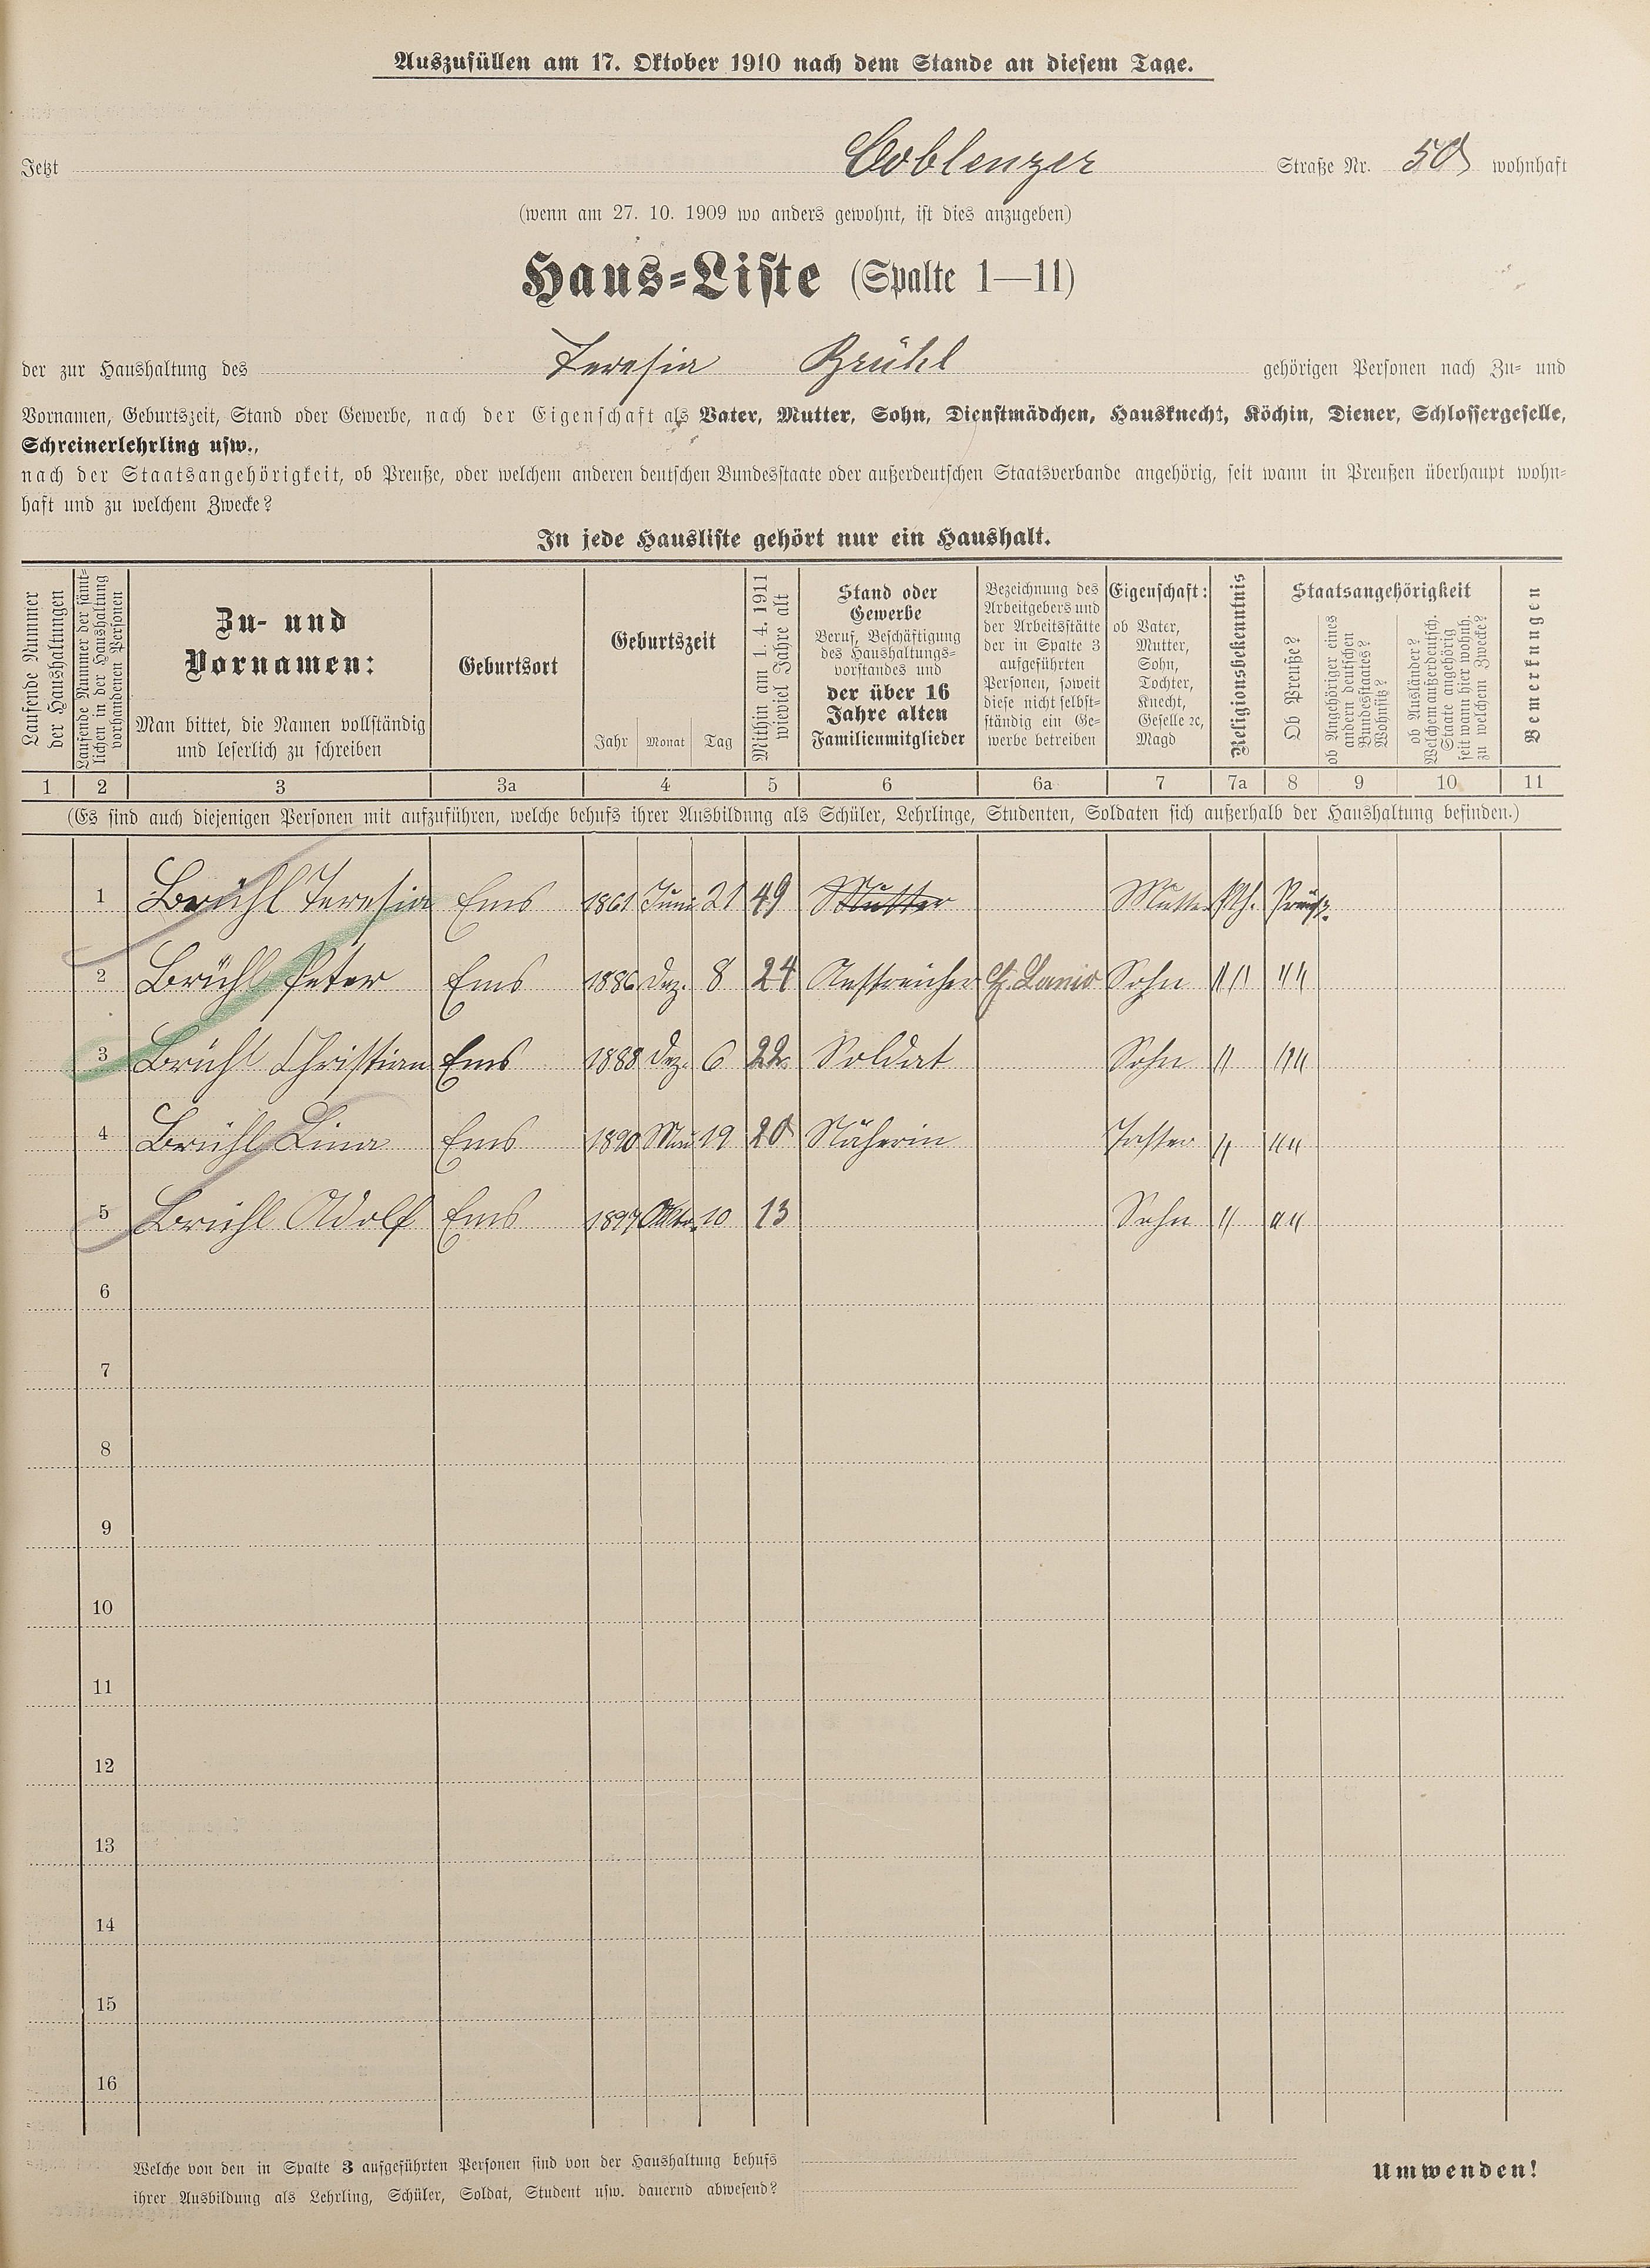 Auszufüllen am 17. Oktober 1910 nach dem Stande an diesem Tage.
Jetzt Coblenzer Straße Nr. 50 wohnhaft
(wenn am 27. 10. 1909 wo anders gewohnt, ist dies anzugeben)
Haus-Liste (Spalte 1—11)
der zur Haushaltung des Teresia Brühl gehörigen Personen nach Zu- und
Vornamen, Geburtszeit, Stand oder Gewerbe, nach der Eigenschaft als Vater, Mutter, Sohn, Dienstmädchen, Hausknecht, Köchin, Diener, Schlossergeselle,
Schreinerlehrling usw.,
nach der Staatsangehörigkeit, ob Preuße, oder welchem anderen deutschen Bundesstaate oder außerdeutschen Staatsverbande angehörig, seit wann in Preußen überhaupt wohn-
haft und zu welchem Zwecke?
In jede Hausliste gehört nur ein Haushalt.
Laufende Nummer
der Haushaltungen
Laufende Nummer der sämt-
lichen in der Haushaltung
vorhandenen Personen
Zu- und
Vornamen:
Man bittet, die Namen vollständig
und leserlich zu schreiben
Geburtsort
Geburtszeit
Jahr Monat Tag
Mithin am 1. 4. 1911
wieviel Jahre alt
Stand oder
Gewerbe
Beruf, Beschäftigung
des Haushaltungs-
vorstandes und
der über 16
Jahre alten
Familienmitglieder
Bezeichnung des
Arbeitgebers und
der Arbeitsstätte
der in Spalte 3
aufgeführten
Personen, soweit
diese nicht selbst-
ständig ein Ge-
werbe betreiben
Eigenschaft:
ob Vater,
Mutter,
Sohn,
Tochter,
Knecht,
Geselle ꝛc,
Magd
Religionsbekenntnis
Staatsangehörigkeit
Ob Preuße?
ob Angehöriger eines
andern deutschen
Bundesstaates?
Wohnsitz?
ob Ausländer?
Welchem außerdeutsch.
Staate angehörig
seit wann hier wohnh.
zu welchem Zwecke?
Bemerkungen
1 2 3 3a 4 5 6 6a 7 7a 8 9 10 11
(Es sind auch diejenigen Personen mit aufzuführen, welche behufs ihrer Ausbildung als Schüler, Lehrlinge, Studenten, Soldaten sich außerhalb der Haushaltung befinden.)
1 Brühl Teresia Ems 1861 Juni 21 49 Mutter Mutter Kth. Preuß.
2 Brühl Peter Ems 1886 Dez. 8 24 Anstreicher Sohn " "
3 Brühl Christian Ems 1888 Dez. 6 22 Soldat Sohn " "
4 Brühl Lina Ems 1890 Mai 19 20 Näherin Tochter " "
5 Brühl Adolf Ems 1897 Okto. 10 13 Sohn " "
6
7
8
9
10
11
12
13
14
15
16
Welche von den in Spalte 3 aufgeführten Personen sind von der Haushaltung behufs
ihrer Ausbildung als Lehrling, Schüler, Soldat, Student usw. dauernd abwesend?
Umwenden!